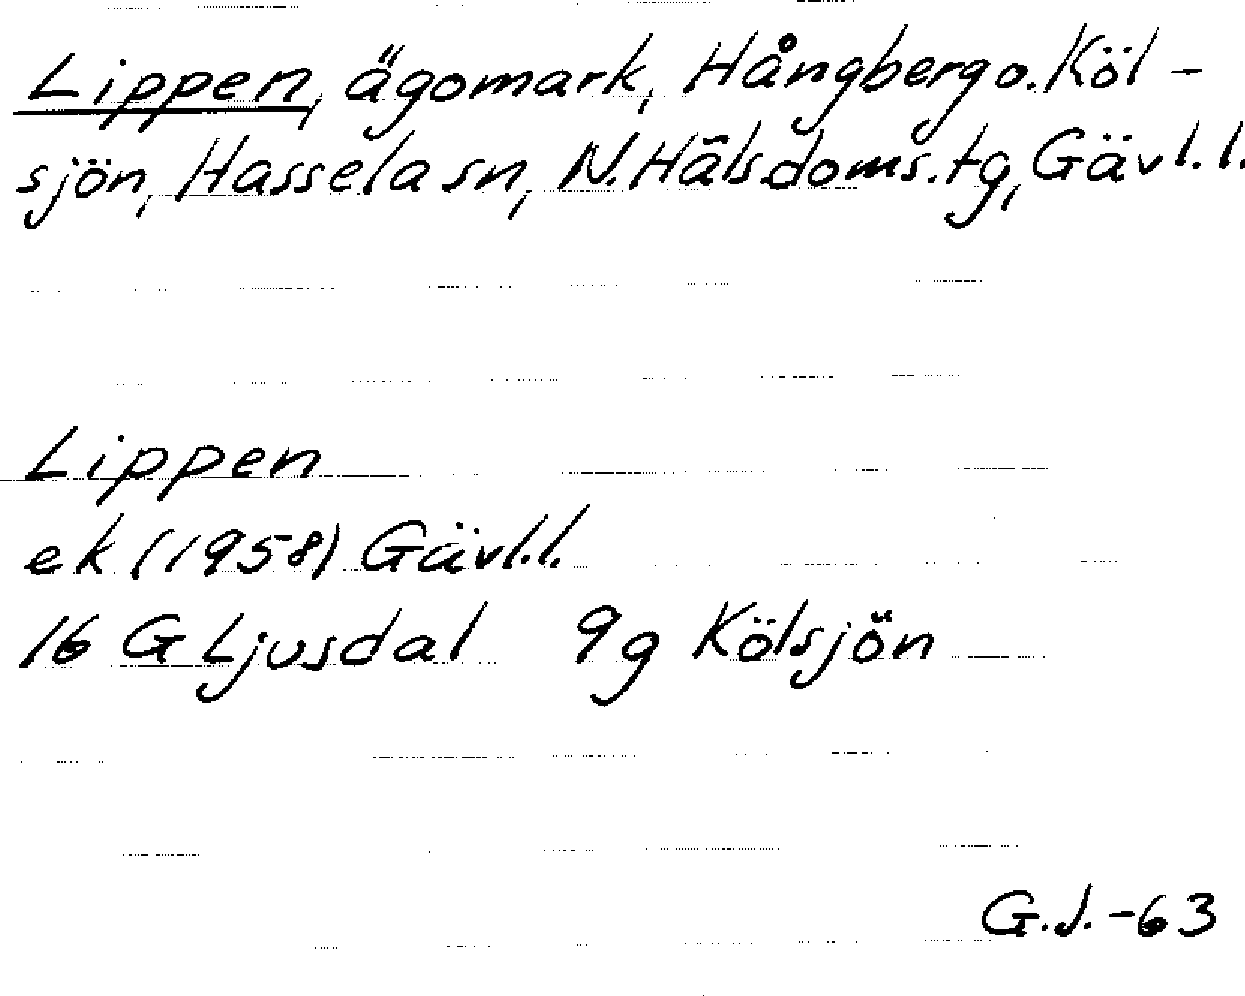 Lippen, ägomark, Hångberg o. Köl-
sjön, Hassela sn, N. Häls. doms. tg, Gävl. l.
Lippen
ek (1958) Gävl. l.
16 G Ljusdal 9g Kölsjön
G.J. -63